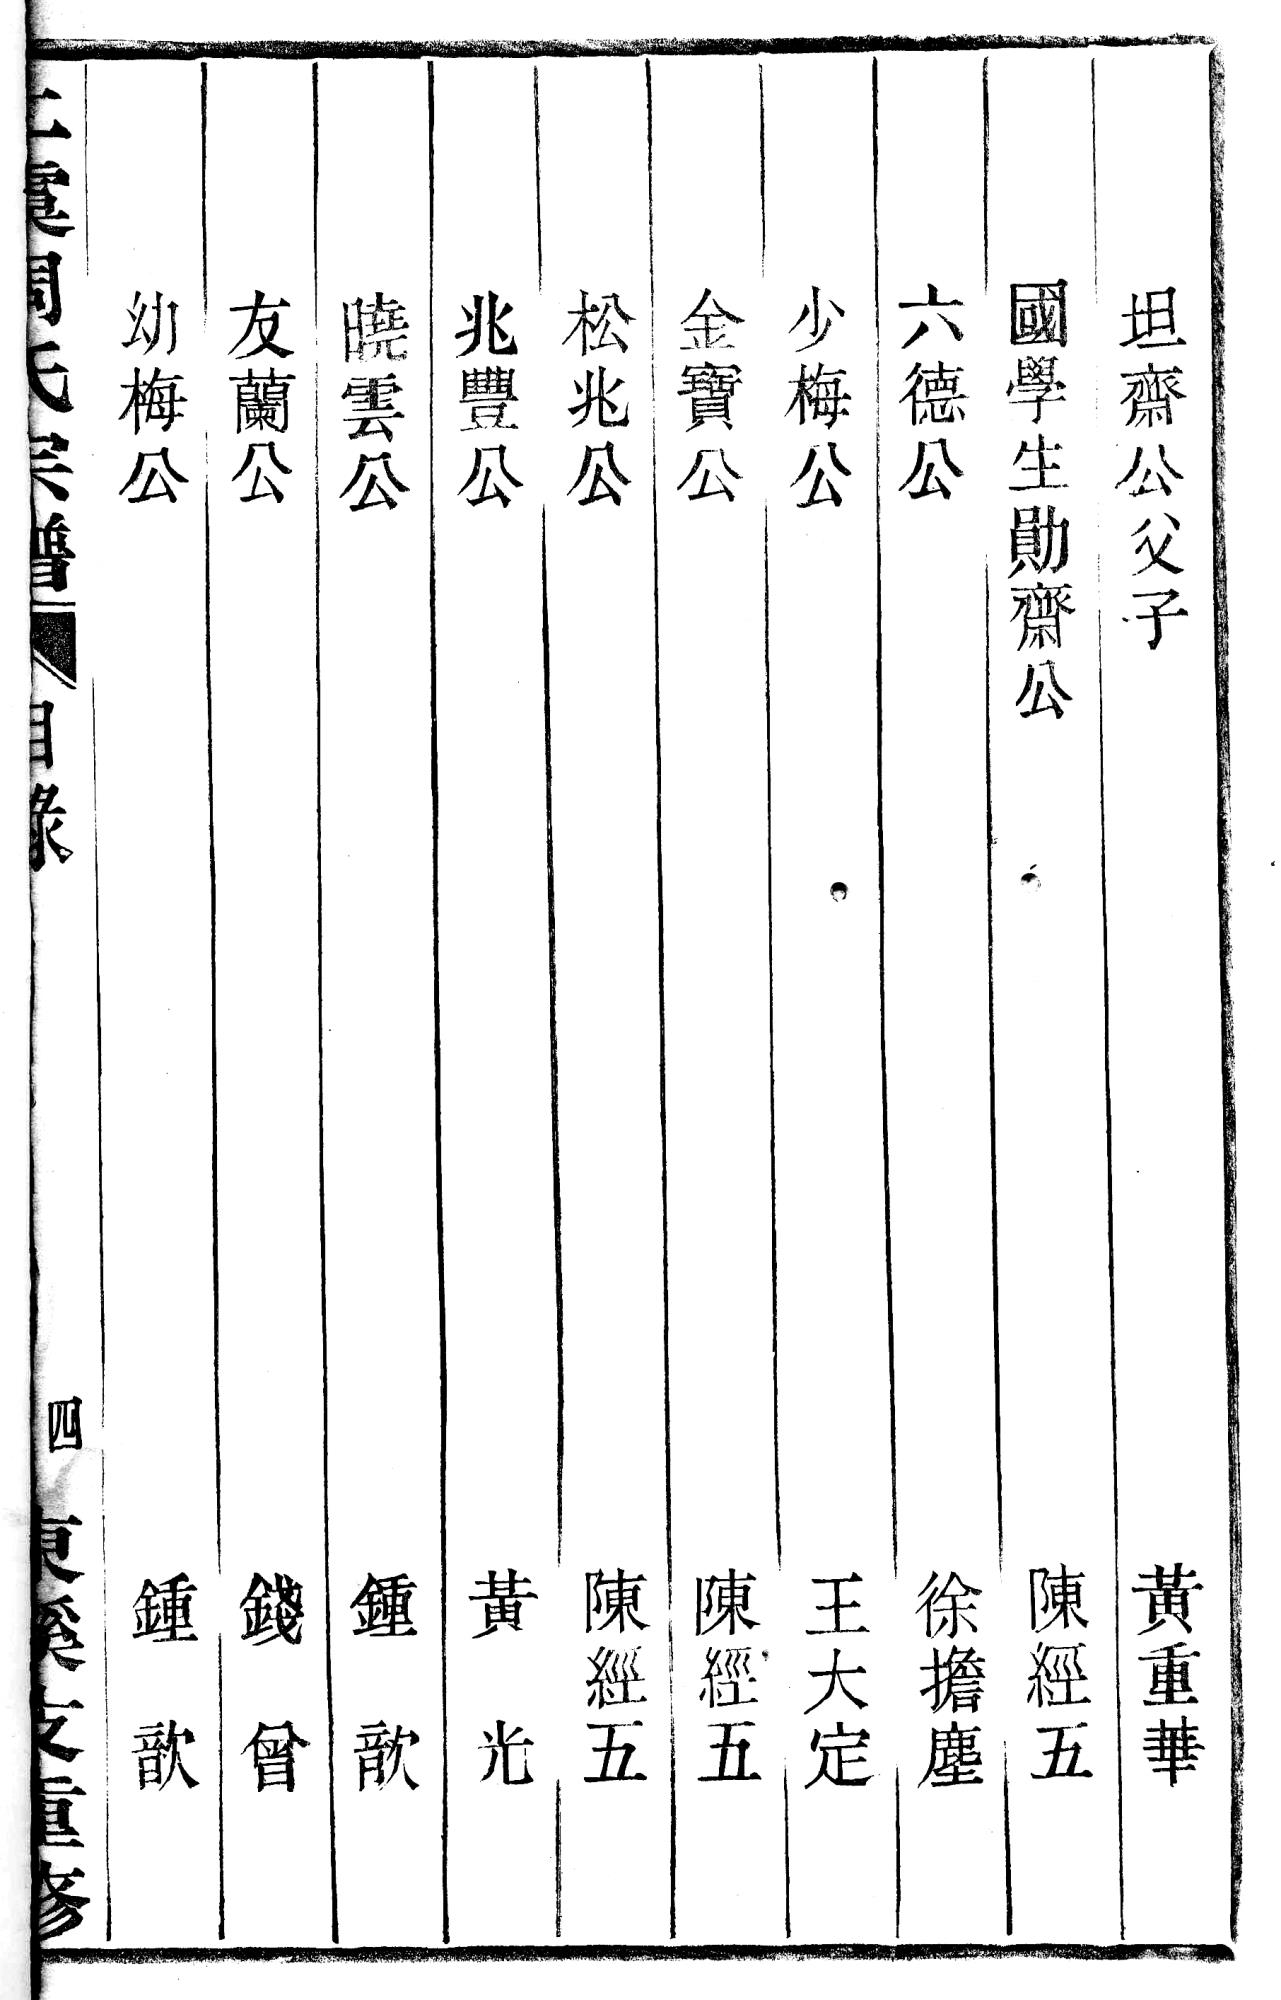 坦齋公父子　黃重華
國學生勛齋公　陳經五
六德公　徐擔塵
少梅公　王大定
金寶公　陳經五
松兆公　陳經五
兆豐公　黃光
曉雲公　鍾歆
友蘭公　錢曾
幼梅公　鍾歆
上虞周氏宗譜　目錄　四　東溪支重修